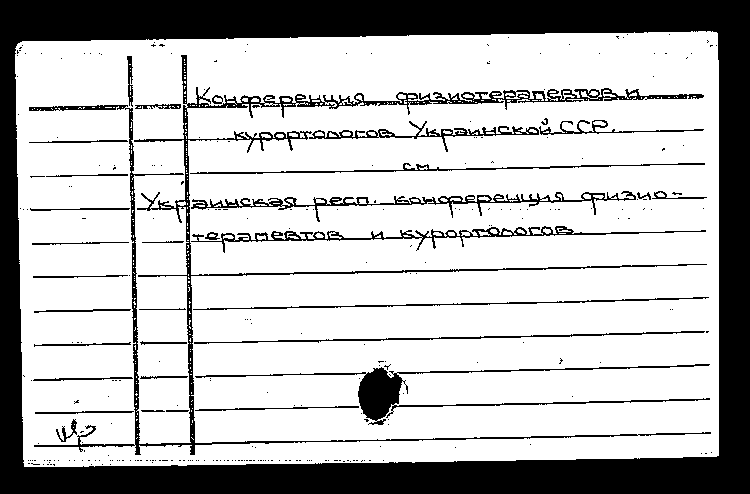 Конференция физиотерапевтов и
курортологов Украинской ССР.
см.
Украинская респ. конференция физио-
терапевтов и курортологов.